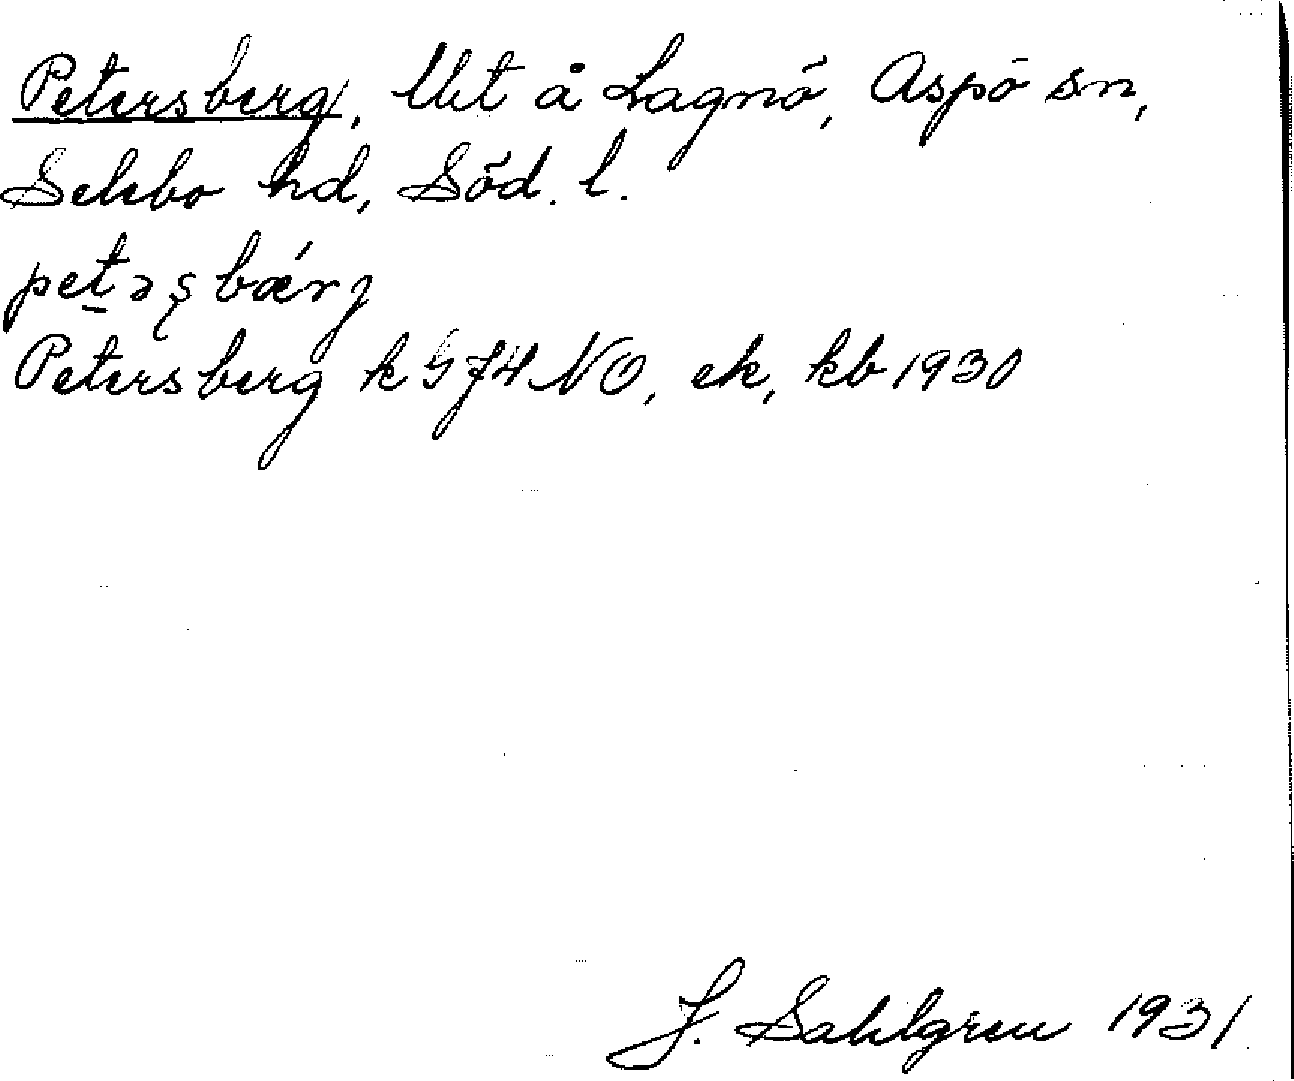 Petersberg, Utt å Lagnö, Aspö sn,
Selebo hd, Söd. l.
petəʂbǽrj
Petersberg k G J4 NO, ek, kb 1930
J. Sahlgren 1931